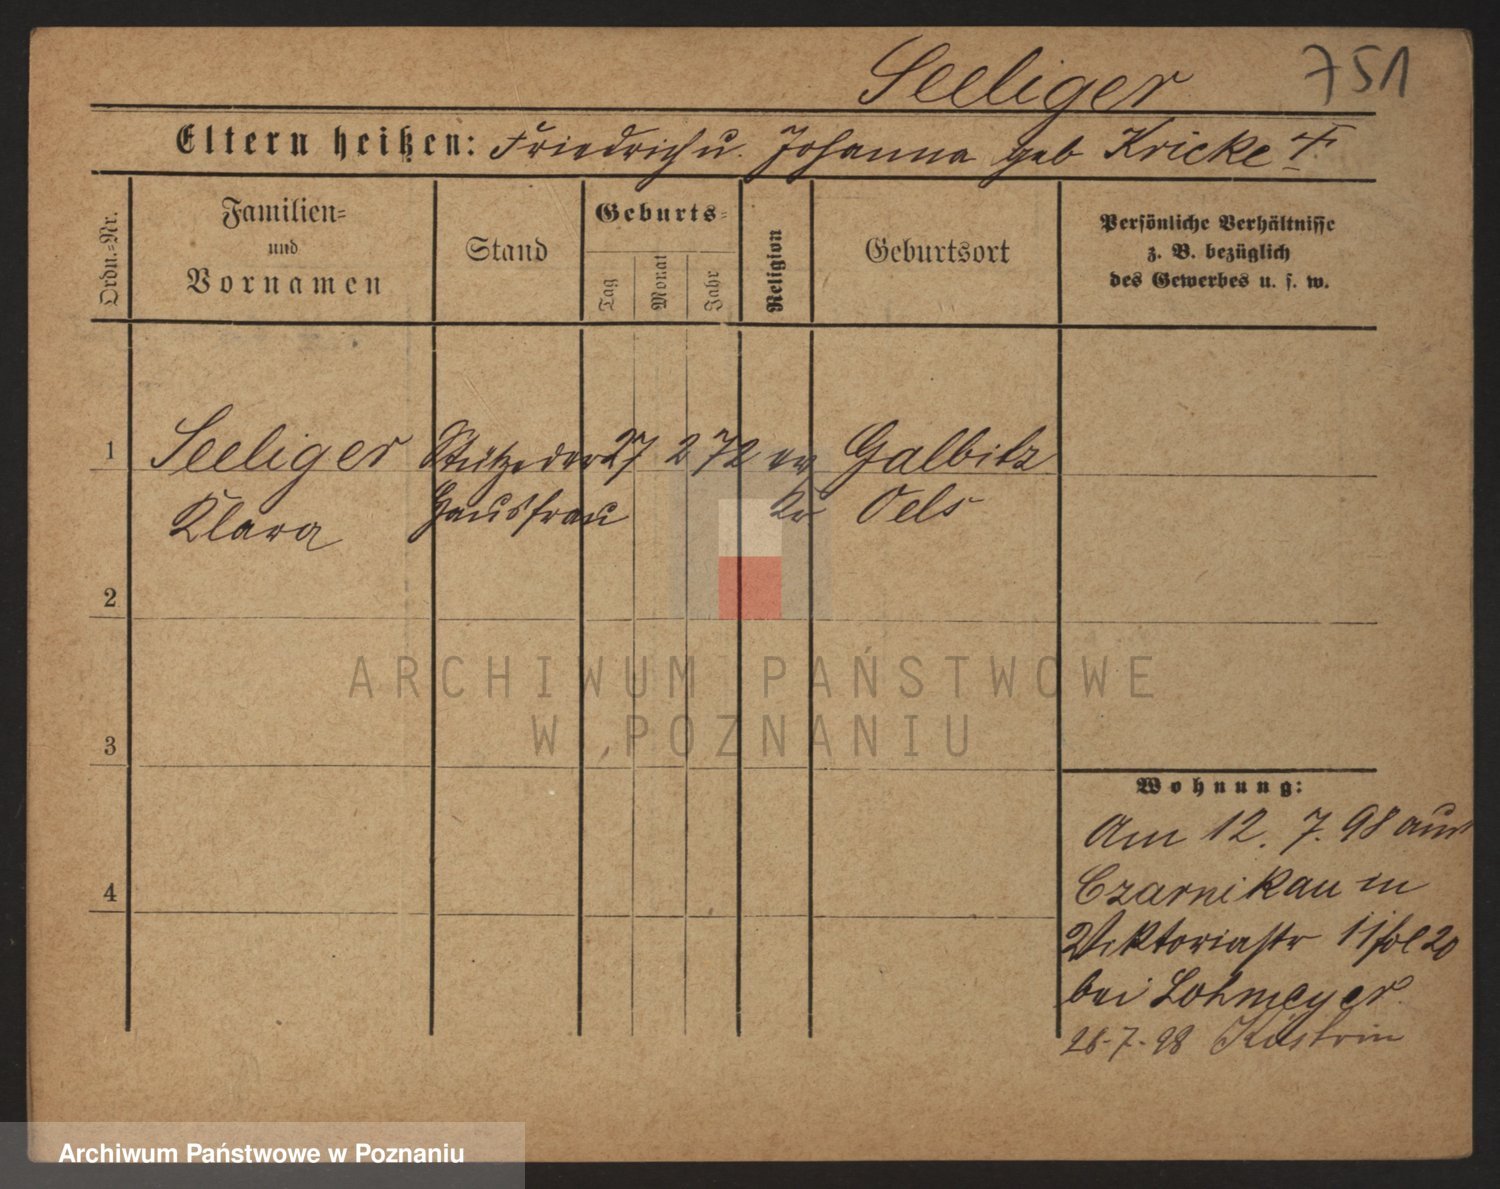 Seeliger 751
Eltern heißen: Friedrich u. Johanna geb Kricke †
Ordn.-Nr.
Familien-
und
Vornamen
Stand
Geburts-
Tag
Monat
Jahr
Religion
Geburtsort
Persönliche Verhältnisse
z. B. bezüglich
des Gewerbes u. s. w.
1 Seeliger Stütze der 27 2 72 ev Galbitz
Klara Hausfrau Kr Oels
2
3
4
Wohnung:
Am 12. 7. 98 aus
Czarnikau in
Viktoriastr 11 fol 20
bei Lohmeyer
28.7.98 Küstrin
ARCHIWUM PAŃSTWOWE
W POZNANIU
Archiwum Państwowe w Poznaniu